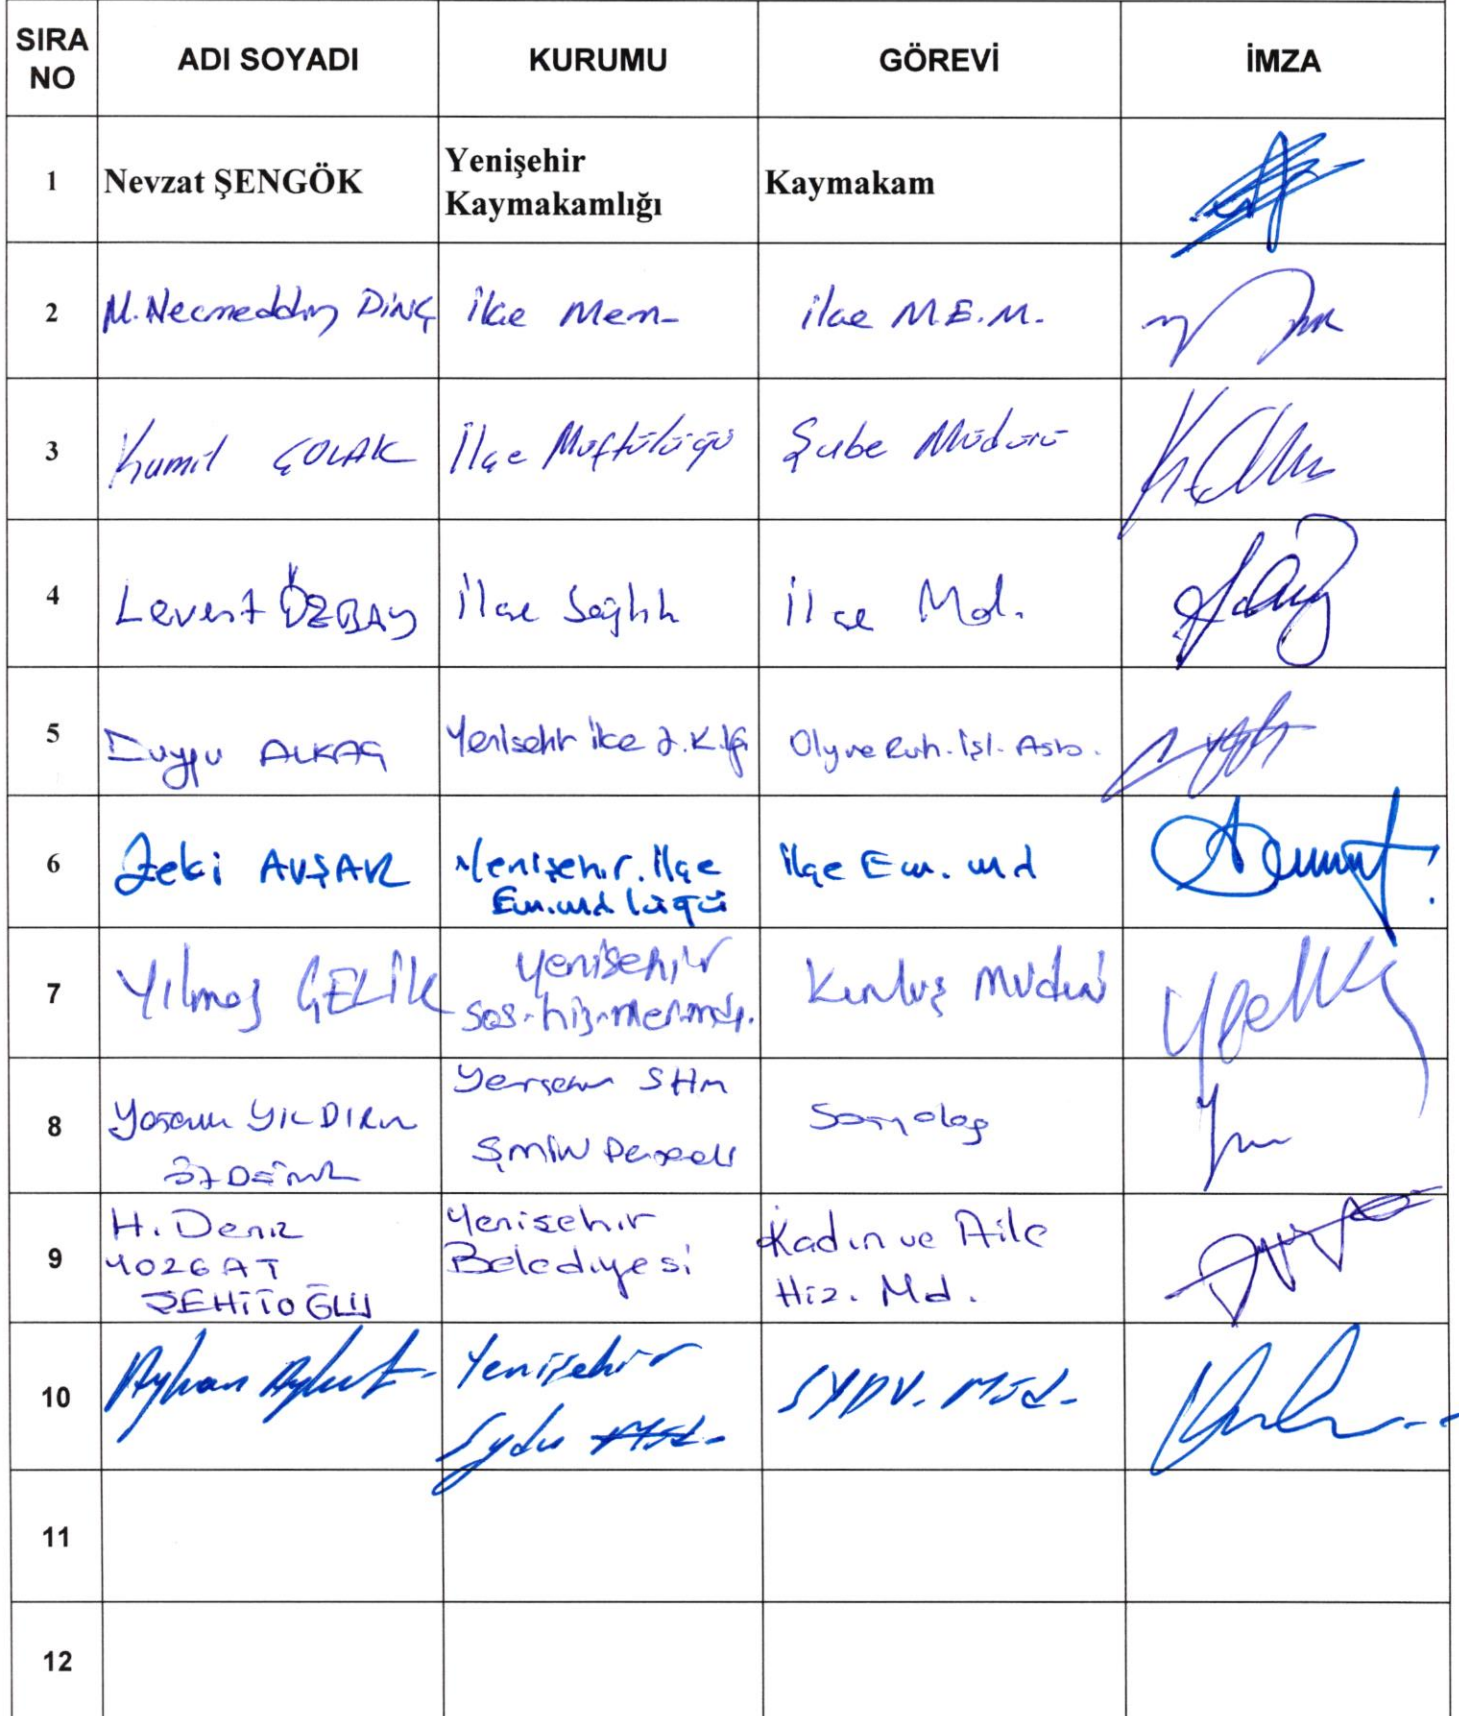 SIRA NO ADI SOYADI KURUMU GÖREVİ İMZA
1 Nevzat ŞENGÖK Yenişehir Kaymakamlığı Kaymakam
2 M. Necmeddin DİNÇ ilçe Mem- ilçe M.E.M.
3 Kamil ÇOLAK İlçe Müftülüğü Şube Müdürü
4 Levent ÖZBAY İlçe Sağlık İlçe Md.
5 Duygu ALKAÇ Yenişehir ilçe
6 Zeki AVŞAR Yenişehir. İlçe Em.md lüğü ilçe Em. md
7 Yılmaz ÇELİK Yenişehir Sos. hiz. mer. Kuruluş Müdürü
8 YILDIRIM SHM ŞMİM Sosyolog
9 H. Deniz YOZGAT ŞEHİTOĞLU Yenişehir Belediyesi Kadın ve Aile Hiz. Md.
10 Ayhan Aykut Yenişehir Sydv SYDV. Müd.
11
12